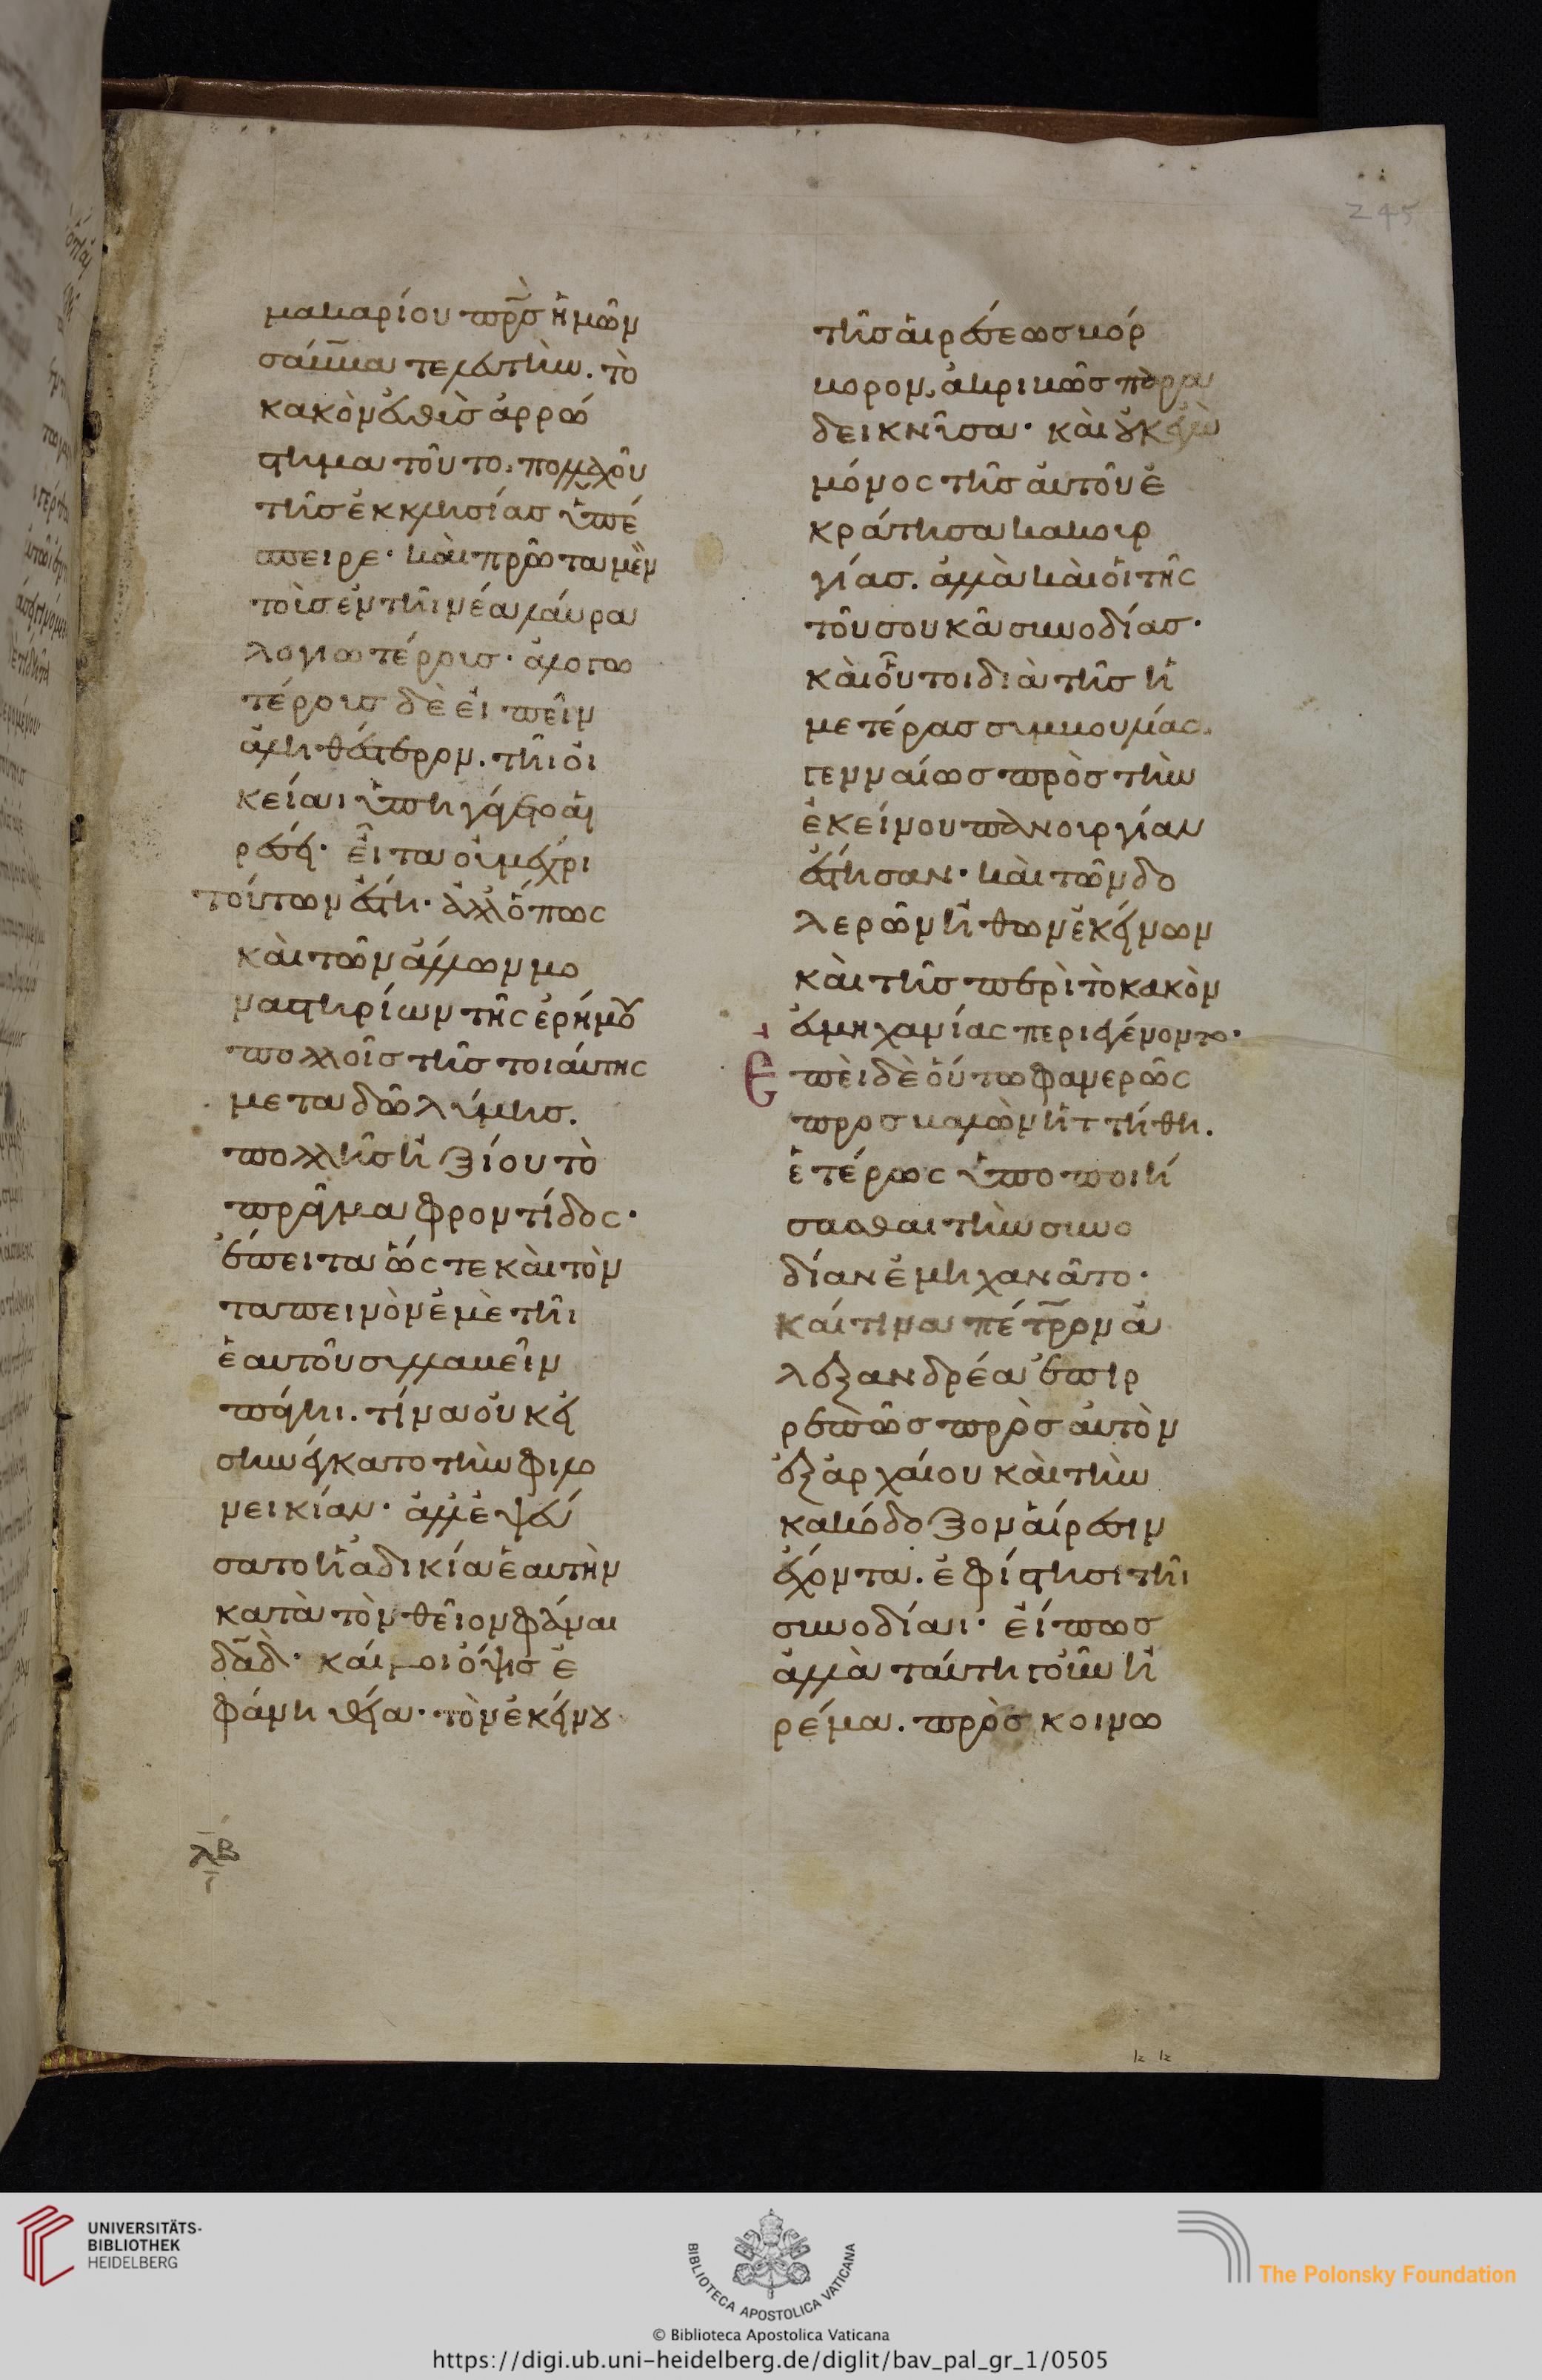 245
μακαρίου πρσ̀ ἡμῶν
σάββα τελευτὴν. τὸ
κακὸν αὖθις ἀρρώ
στημα τοῦτο, πολλαχοῦ
τῆς ἐκκλησίας ὑπέ
σπειρε· καὶ πρῶτα μὲν
τοῖς ἐν τῆι νέα λαύρα
λογιωτέροις· ἀλογω
τέροις δὲ εἰπεῖν
ἀληθέστερον. τῆι οἰ
κείαι ὑπηγάγετο αἱ
ρέσει· εἶτα οὐ μέχρι
τούτων ἔστη· ἀλλ' ὅπως
καὶ τῶν ἄλλων μο
ναστηρίων τῆς ἐρήμου
πολλοῖς τῆς τοιαύτης
μεταδῶ λύμης.
πολλῆς ἠξίου τὸ
πρᾶγμα φροντίδος·
ἔπειτα ὥς τε καὶ τὸν
ταπεινὸν ἐμὲ τῆι
ἑαυτοῦ συλλαβεῖν
πάγηι. τίνα οὐκ εἰ
σηνέγκατο τὴν φιλο
νεικίαν· ἀλλ' ἐψεύ
σατο ἡ ἀδικία ἑαυτὴν
κατὰ τὸν θεῖον φάναι
δᾱδ· καί μοι ὄψις ἐ
φάνη θεία· τὸν ἐκείνου
λβ
τῆς αἱρέσεως βόρ
βορον, ἀκριβῶς παρα
δεικνῦσα· καὶ οὐκ ἐγὼ
μόνος τῆς αὐτοῦ ἐ
κράτησα κακουρ
γίας. ἀλλὰ καὶ οἱ τῆς
τοῦ σουκᾶ συνοδίας·
καὶ οὗτοι διὰ τῆς ἡ
μετέρας συμβουλίας.
γενναίως πρὸς τὴν
ἐκείνου πανουργίαν
ἔστησαν· καὶ τῶν δο
λερῶν ἠθῶν ἐκείνων
καὶ τῆς περὶ τὸ κακὸν
εὐμηχανίας περιεγένοντο·
Ἐπεὶ δὲ οὕτω φανερῶς
προσβαλὼν ἡττήθη.
ἑτέρως ὑποποιή
σασθαι τὴν συνο
δίαν ἐμηχανᾶτο·
καί τινα πέτρον ἀ
λεξανδρέα ἐπιρ
ρεπῶς πρὸς αὐτὸν
ἐξ ἀρχαίου καὶ τὴν
κακόδοξον αἵρεσιν
ἔχοντα. ἐφίστησι τῆι
συνοδίαι· εἴ πως
ἀλλὰ ταύτη γοῦν ἠ
ρέμα. πρὸς κοινω
UNIVERSITÄTS-
BIBLIOTHEK
HEIDELBERG
BIBLIOTECA APOSTOLICA VATICANA
The Polonsky Foundation
© Biblioteca Apostolica Vaticana
https://digi.ub.uni-heidelberg.de/diglit/bav_pal_gr_1/0505